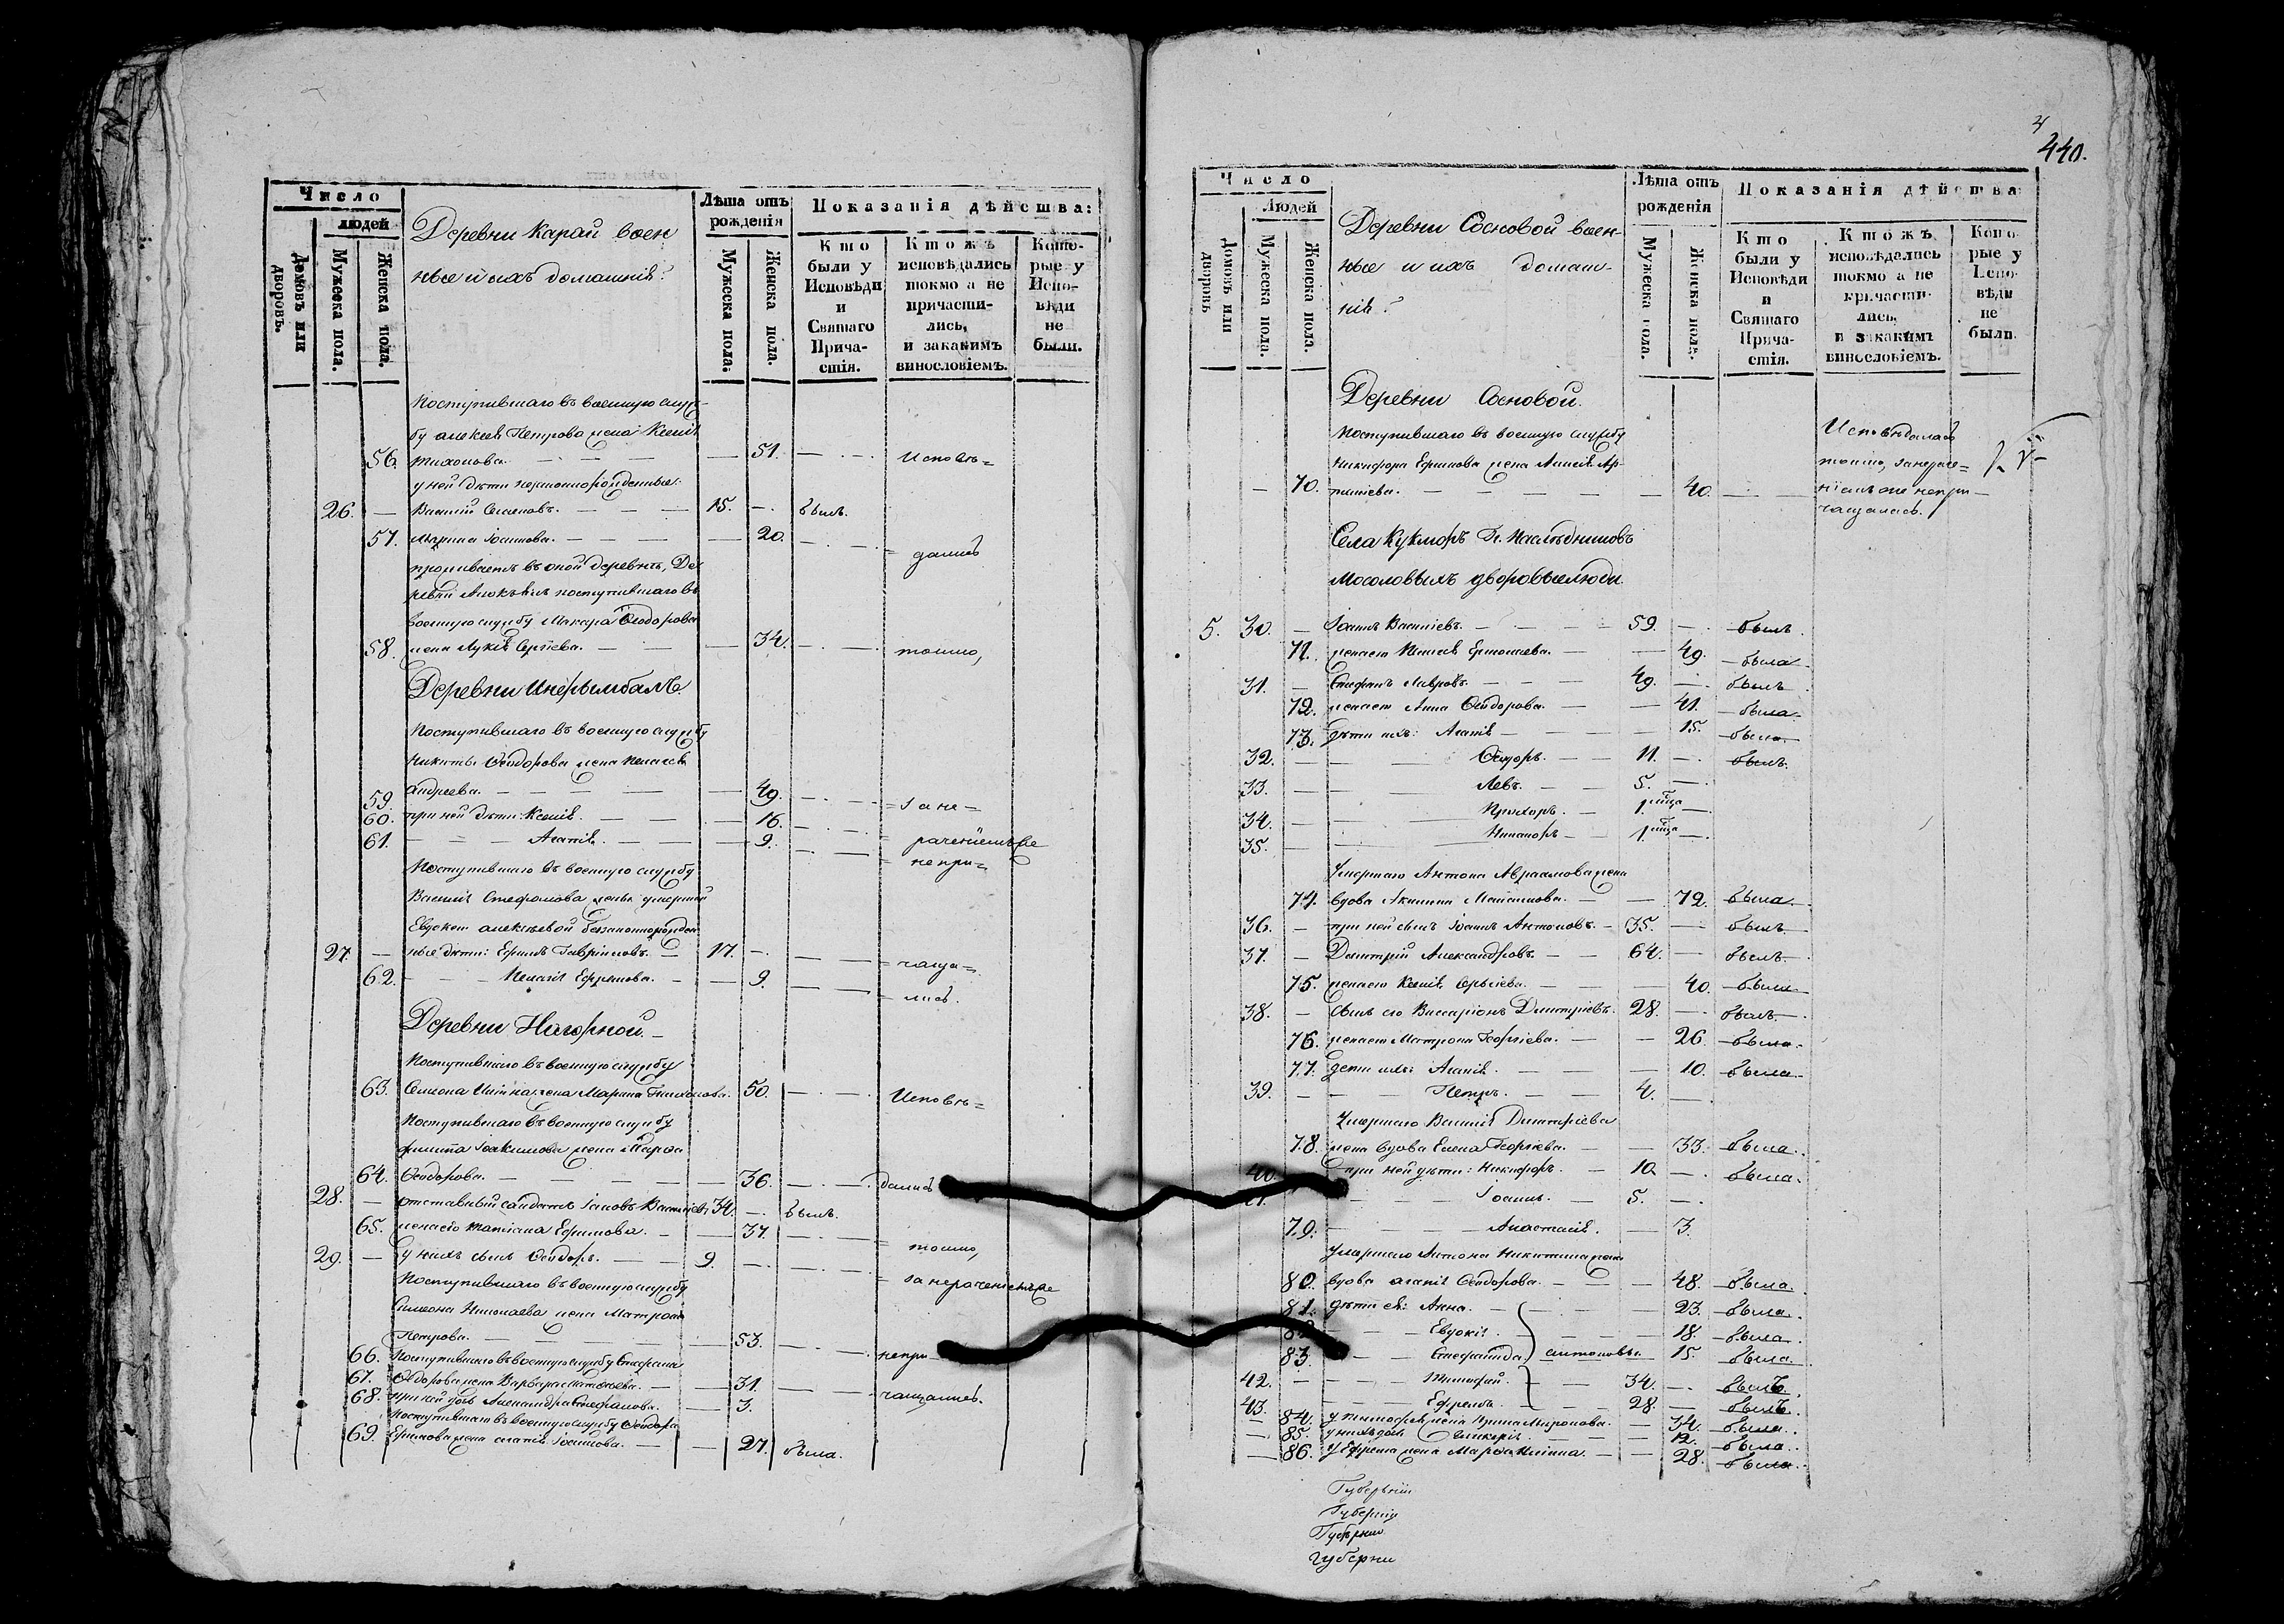 Число
людей
Домовъ или дворовъ.
Мужеска пола.
Женска пола.
Деревни Карай воен
ные и ихъ домашнiя:
Лѣта отъ рожденiя
Мужеска пола.
Женска пола.
Показанiя дѣйства:
Кто были у Исповѣди и Святаго Прича-стiя.
Ктожъ исповѣдались токмо а не причасти-лись, и закакимъ винословiемъ.
Кото-рые у Испо-вѣди не были.
Поступившаго въ военную служ-
бу Алексѣя Петрова жена Ксенiя
56. Тихонова. 51. Исповѣ=
у ней дѣти незаконнорожденные:
26. Василiй Семеновъ. 15. былъ.
57. Iоаннова. 20. дались
проживаетъ въ оной деревнѣ, Де
ревни поступившаго въ
военную службу Макара Ѳеодорова
58. жена Сергiева. 34. токмо,
Деревни
Поступившаго въ военную службу
Никиты Ѳеодорова жена Пелагея
59. Андреева. 49. за не=
60. при ней дѣти: Ксенiя. 16.
61. Агапiя. 9. раченiемъ же
непри=
Поступившаго въ военную службу
Василiя Стефанова жены умершей
Евдокеи Алексѣевой беззаконнорожден
27. ные дѣти: Ефимъ Гаврiиловъ. 17. чаща=
62. Пелагiя Ефремова. 9. лись.
Деревни Нагорной.
Поступившаго въ военную службу
63. Семиона Ильина жена Марина Тихонова. 50. Исповѣ=
Поступившаго въ военную службу
Филипа Iоакимова жена Марѳа
64. Ѳеодорова. 36. дались
28. отставный солдатъ Iаковъ Василiевъ 34. былъ.
65. жена его Татiана Ефимова. 37. токмо,
29. у нихъ сынъ Ѳеодоръ. 9.
за нераченiемъ же
Поступившаго въ военную службу
Симеона Николаева жена Матрона
66. Петрова. 53. непри-
Поступившаго въ военную службу Стефана
67. Ѳеодорова жена Варвара Матвѣева. 31.
68. при ней дочь Александра Стефанова. 3. чащались.
Поступившаго въ военную службу Ѳеодора
69. Ефимова жена Агапiя Iоаннова. 27. была.
440.
Число
Людей
Домовъ или дворовъ
Мужеска пола.
Женска пола.
Деревни Сосновой воен-
ные и ихъ домаш-
нiя:
Лѣта отъ рожденiя
Мужеска пола.
Женска пола.
Показанiя дѣйства
Кто были у Исповѣди и Святаго Прича-стiя.
Ктожъ исповѣдались токмо а не причасти-лись, и закакимъ винословiемъ.
Кото-рые у Испо-вѣди не были.
Деревни Сосновой.
Поступившаго въ военную службу
Никифора Ефимова жена Ар-
70. темiева. 40.
Исповѣдалась
токмо, занераче=
нiемъ же непри-
чащалась.
Села Кукморъ Г. Наслѣдниковъ
Мосоловыхъ дворовые люди.
5. 30. Iоаннъ Василiевъ. 59. былъ.
71. жена ег Ермолаева. 49. была
31. Стефанъ Лавровъ. 49. былъ
72. жена ег Анна Ѳеодорова. 41. была.
73. дѣти ихъ: Агапiя 15. была.
32. Ѳеодоръ. 11. былъ.
33. Левъ. 5.
34. Прохоръ. 1.
35. Никаноръ 1.
Умершаго Антона Авраамова жена
74. вдова Акилина 72. была.
36. при ней сынъ Iоаннъ Антоновъ. 35. былъ
37. Димитрiй Александровъ. 64. былъ.
75. жена ег Ксенiя Сергiева. 40. была
38. Сынъ его Виссарiонъ Димитрiевъ. 28. былъ.
76. жена ег Матрона Георгiева. 26. была.
77. дети ихъ: Агапiя. 10. была.
39. Петръ. 4.
Умершаго Василiя Димитрiева
78. жена вдова Елена Георгiева. 33. была.
40. при ней дѣти: Никифоръ. 10. была.
41. Iоаннъ. 5.
79. Анастасiя. 3.
Умершаго Антона Никитина жена
80. вдова Агапiя Ѳеодорова. 48. была.
81. дѣти ея: Анна. 23. была.
82. Евдокiя. 18. была.
83. Стефанида Антоновы. 15. была.
42. Тимофей. 34. былъ.
43. Ефремъ. 28. былъ.
84. у Тимофея жена Ирина Миронова. 34. была.
85. у нихъ дочь Гликерiя. 12. была.
86. у Ефрема жена Марѳа Ильина. 28. была.
Губернiи
Губернiи
Губернiи
Губерни